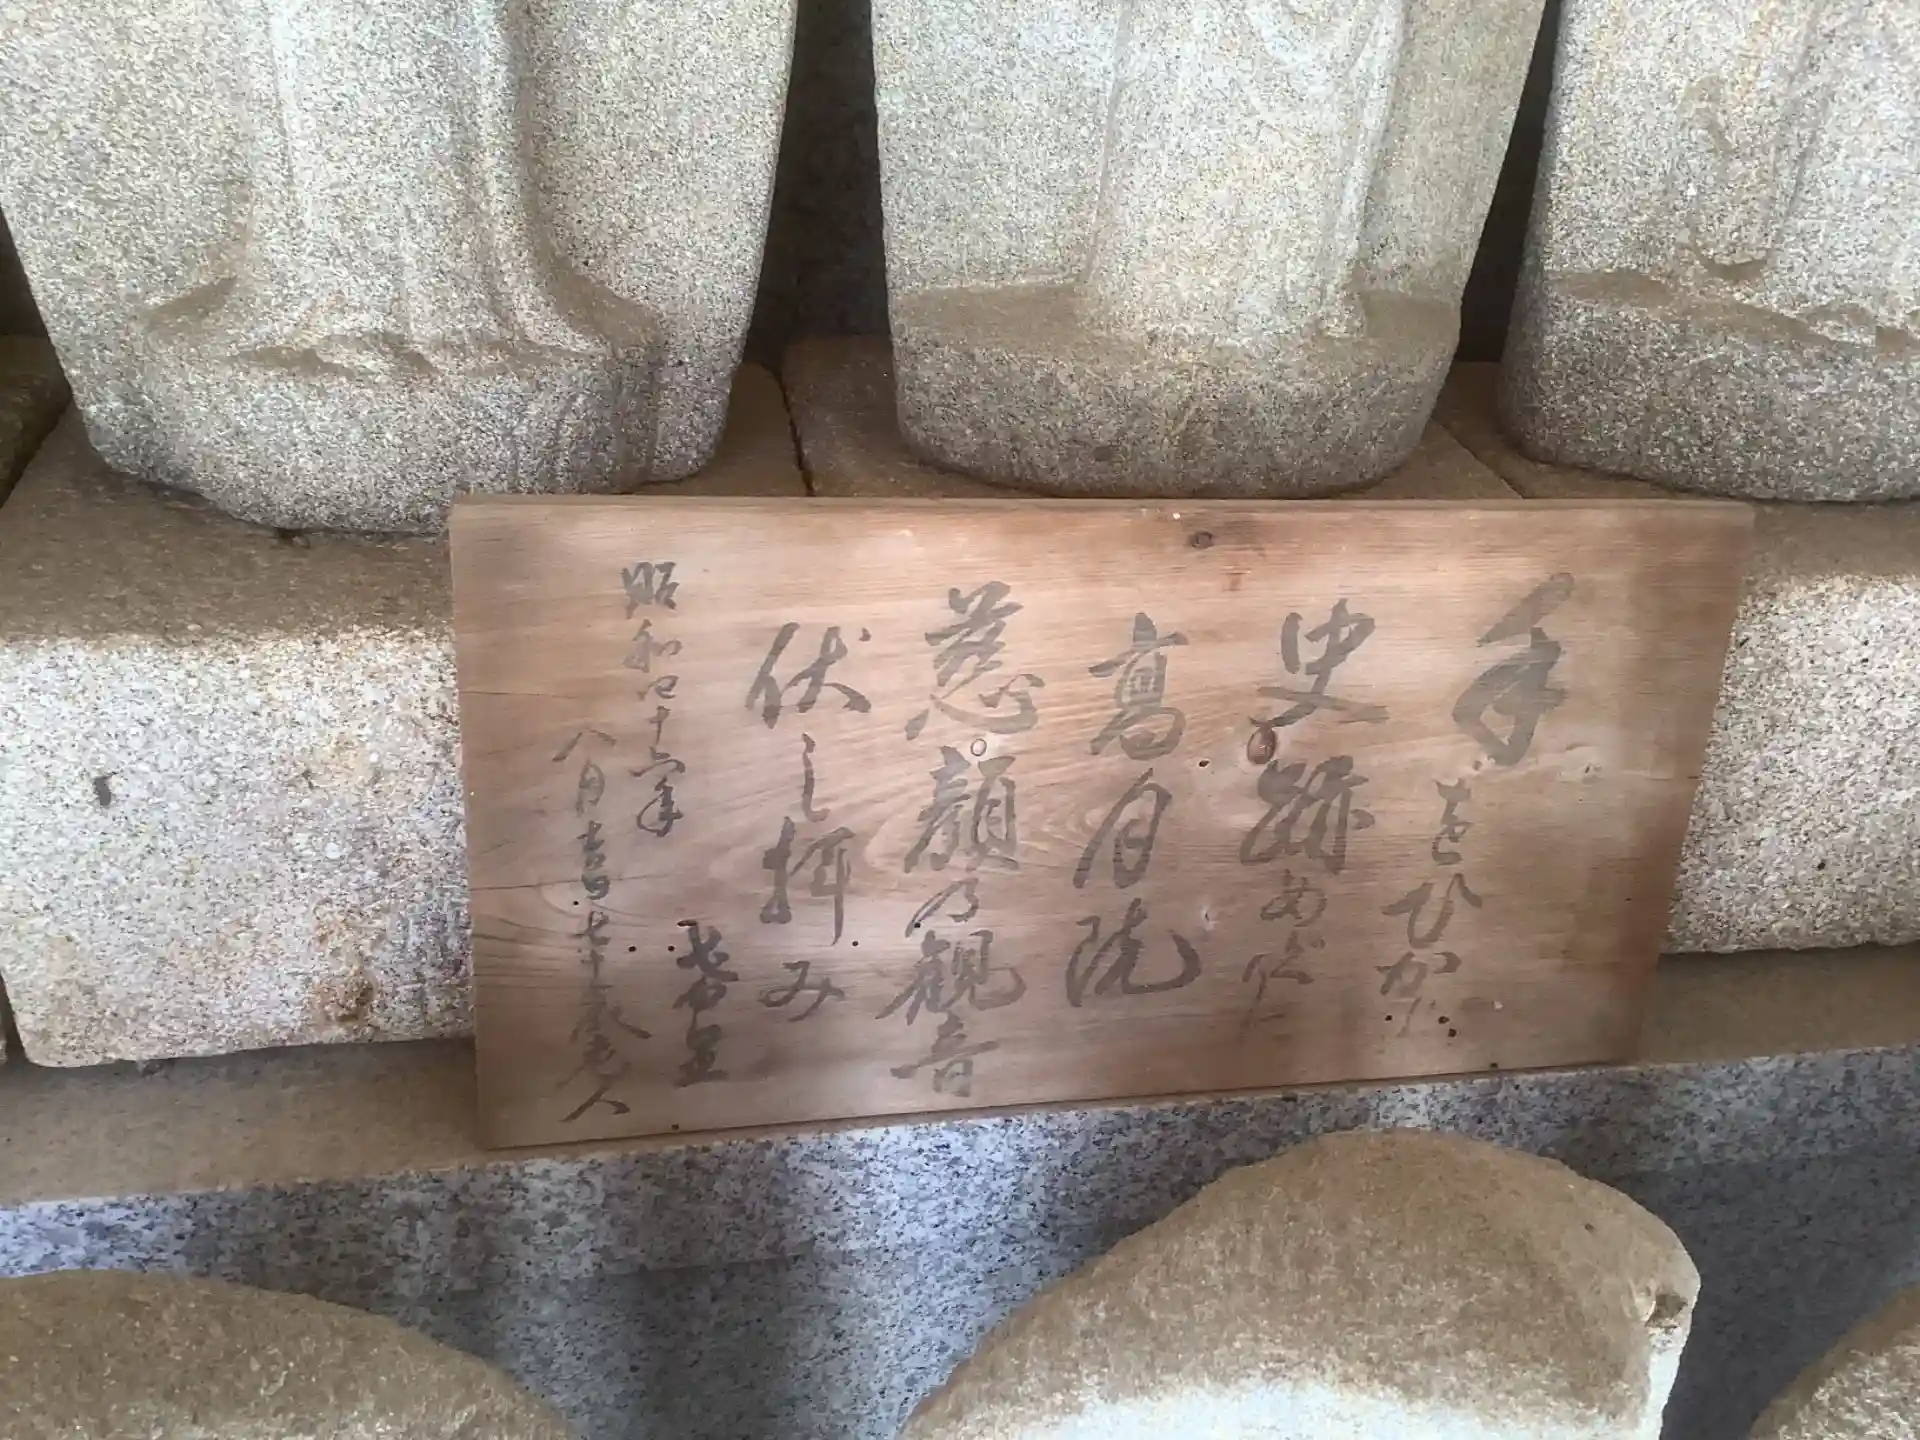 手をひかれ
史跡めぐれば
高月院
慈顔の観音
伏し拝み
昭和四十六年
八月吉日七十二歳老人